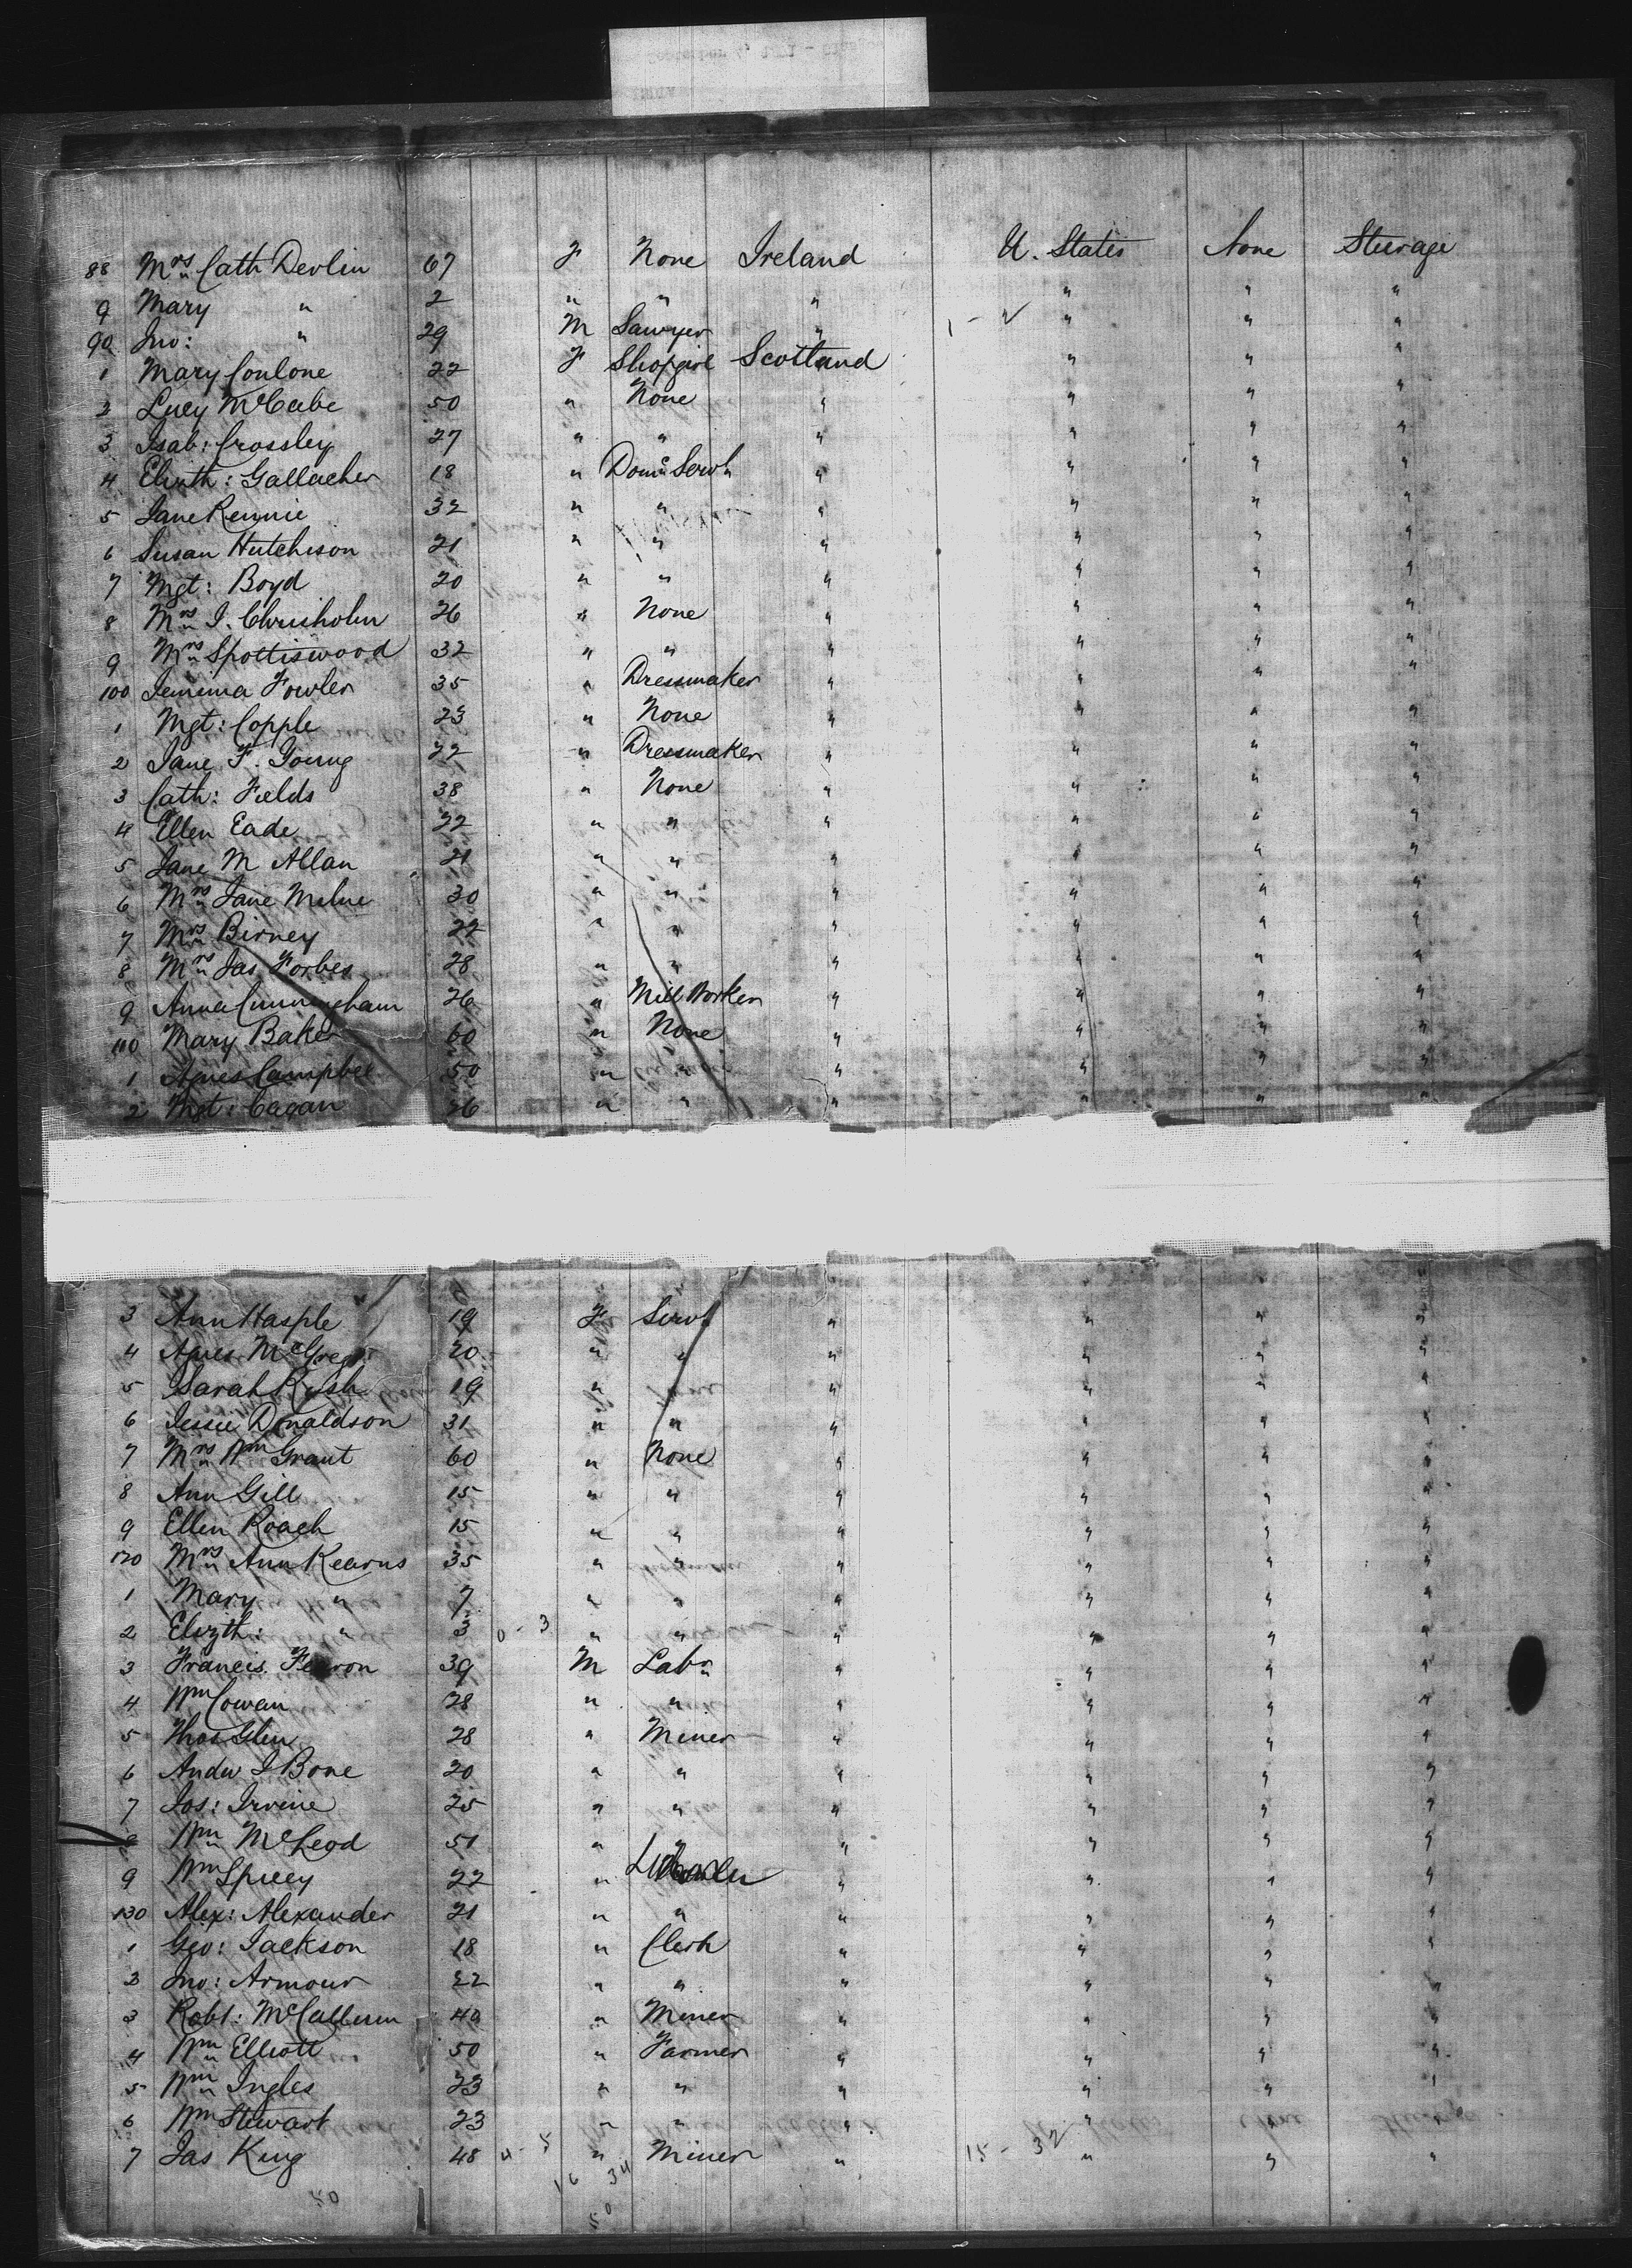 88 Mrs Cath Devlin 67 F None Ireland U. States None Steerage
9 Mary " 2 " " " " " "
90 Jno: " 29 M Sawyer " 1 - " " "
1 Mary Conlone 22 F Shopgirl Scotland " " "
2 Lucy McCabe 50 " None " " " "
3 Isab: Crossley 27 " " " " " "
4 Elizth: Gallacher 18 " Domc Servt " " " "
5 Jane Rennie 32 " " " " " "
6 Susan Hutchison 21 " " " " " "
7 Mgt: Boyd 20 " " " " " "
8 Mrs J. Chrisholm 26 " None " " " "
9 Mrs Spottiswood 32 " " " " "
100 Jemima Fowler 35 " Dressmaker " " " "
1 Mgt: Copple 23 " None " " " "
2 Jane F. Young 22 " Dressmaker " " " "
3 Cath: Fields 38 " None " " " "
4 Ellen Eade 22 " " " " " "
5 Jane M Allan 21 " " " " " "
6 Mrs Jane Milne 30 " " " " " "
7 Mrs Birney 22 " " " " " "
8 Mrs Jas Forbes 28 " " " " " "
9 Anna Cunningham 26 " Mill Worker " " " "
110 Mary Baker 60 " None " " " "
1 Agnes Campbell 50 " " " " " "
2 Mgt: Cagan 26 " " " " " "
3 Ann Hasple 19 F Servt " " " "
4 Agnes McGregor 20 " " " " " "
5 Sarah Rush 19 " " " " "
6 Jessie Donaldson 31 " " " " " "
7 Mrs Wm Grant 60 " None " " " "
8 Ann Gill 15 " " " " " "
9 Ellen Roach 15 " " " " " "
120 Mrs Ann Kearns 35 " " " " " "
1 Mary " 7 " " " " " "
2 Elizth: " 3 0 - 3 " " " " " "
3 Francis Fearon 39 M Labr " " " "
4 Wm Cowan 28 " " " " " "
5 Thos Glen 28 " Miner " " " "
6 Andw J Bone 20 " " " " " "
7 Jos: Irvine 25 " " " " " "
8 Wm McLeod 51 " " " " " "
9 Wm Speey 22 " " " " "
130 Alex: Alexander 21 " " " " " "
1 Geo: Jackson 18 " Clerk " " " "
2 Jno: Armour 22 " " " " " "
3 Robt: McCallum 40 " Miner " " " "
4 Wm Elliott 50 " Farmer " " " "
5 Wm Ingles 23 " " " " " "
6 Wm Stewart 23 " " " "
7 Jas King 48 4 - 5 " Miner " 15 - 32 " " "
16 34
50 50